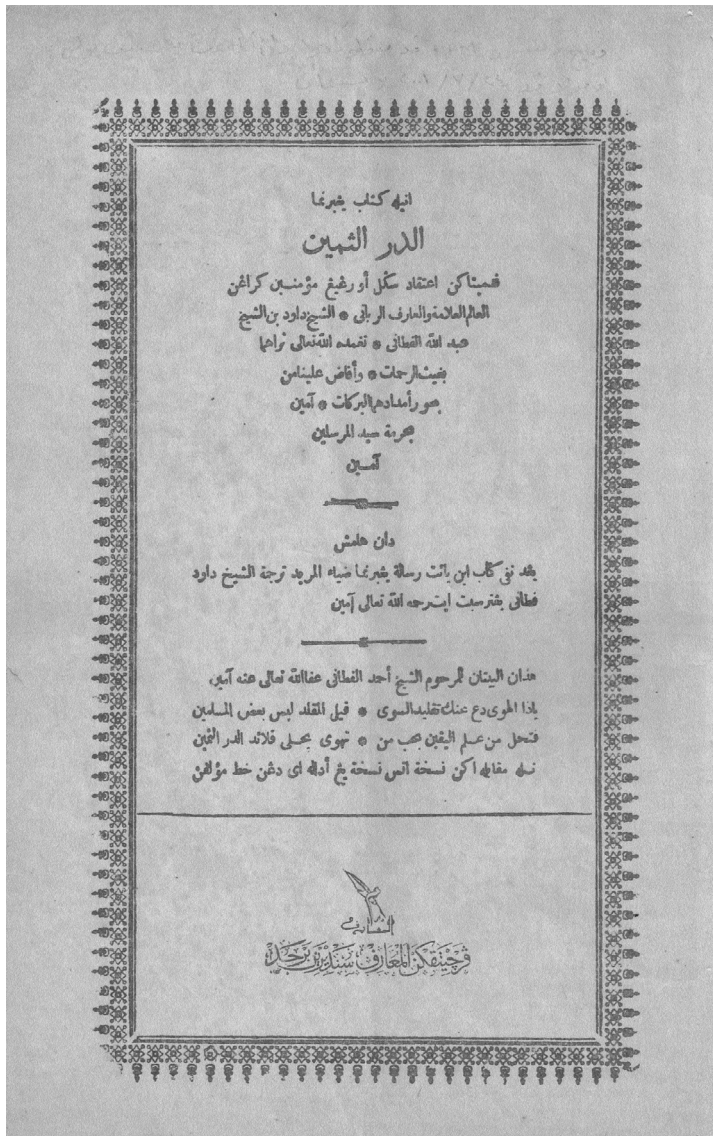 انيله كتاب يڠبرنما
الدر الثمين
فدميتاكن اعتقاد سكل أورڠيڠ مؤمنين كراڠن
العالم العلامة والعارف الرباني * الشيخ داود بن الشيخ
عبد الله الفطاني * تغمده الله تعالى ثراهما
بغيث الرحمات * وأفاض علينا من
بحور أمدادهما البركات * آمين
بحرمة سيد المرسلين
آمين
دان هامش
يڠد تفي كتاب اين يائت رسالة يڠبرنما ضياء المريد ترجمة الشيخ داود
فطاني يڠترسبت ايت رحمه الله تعالى آمين
هذان البيتان للمرحوم الشيخ أحمد الفطاني عفا الله تعالى عنه آمين
ياذا الهوى دع عنك تقليد السوى * قيل المقلد ليس بعض المسلمين
فتحل من علم اليقين بحب من * تهوى بحلى قلائد الدر الثمين
تله مقابله اكن نسخة اتس نسخة يڠ أداله اى دڠن خط مؤلفڽ
المعارف
ڤرچيتقكن المعارف سنديرين برحد